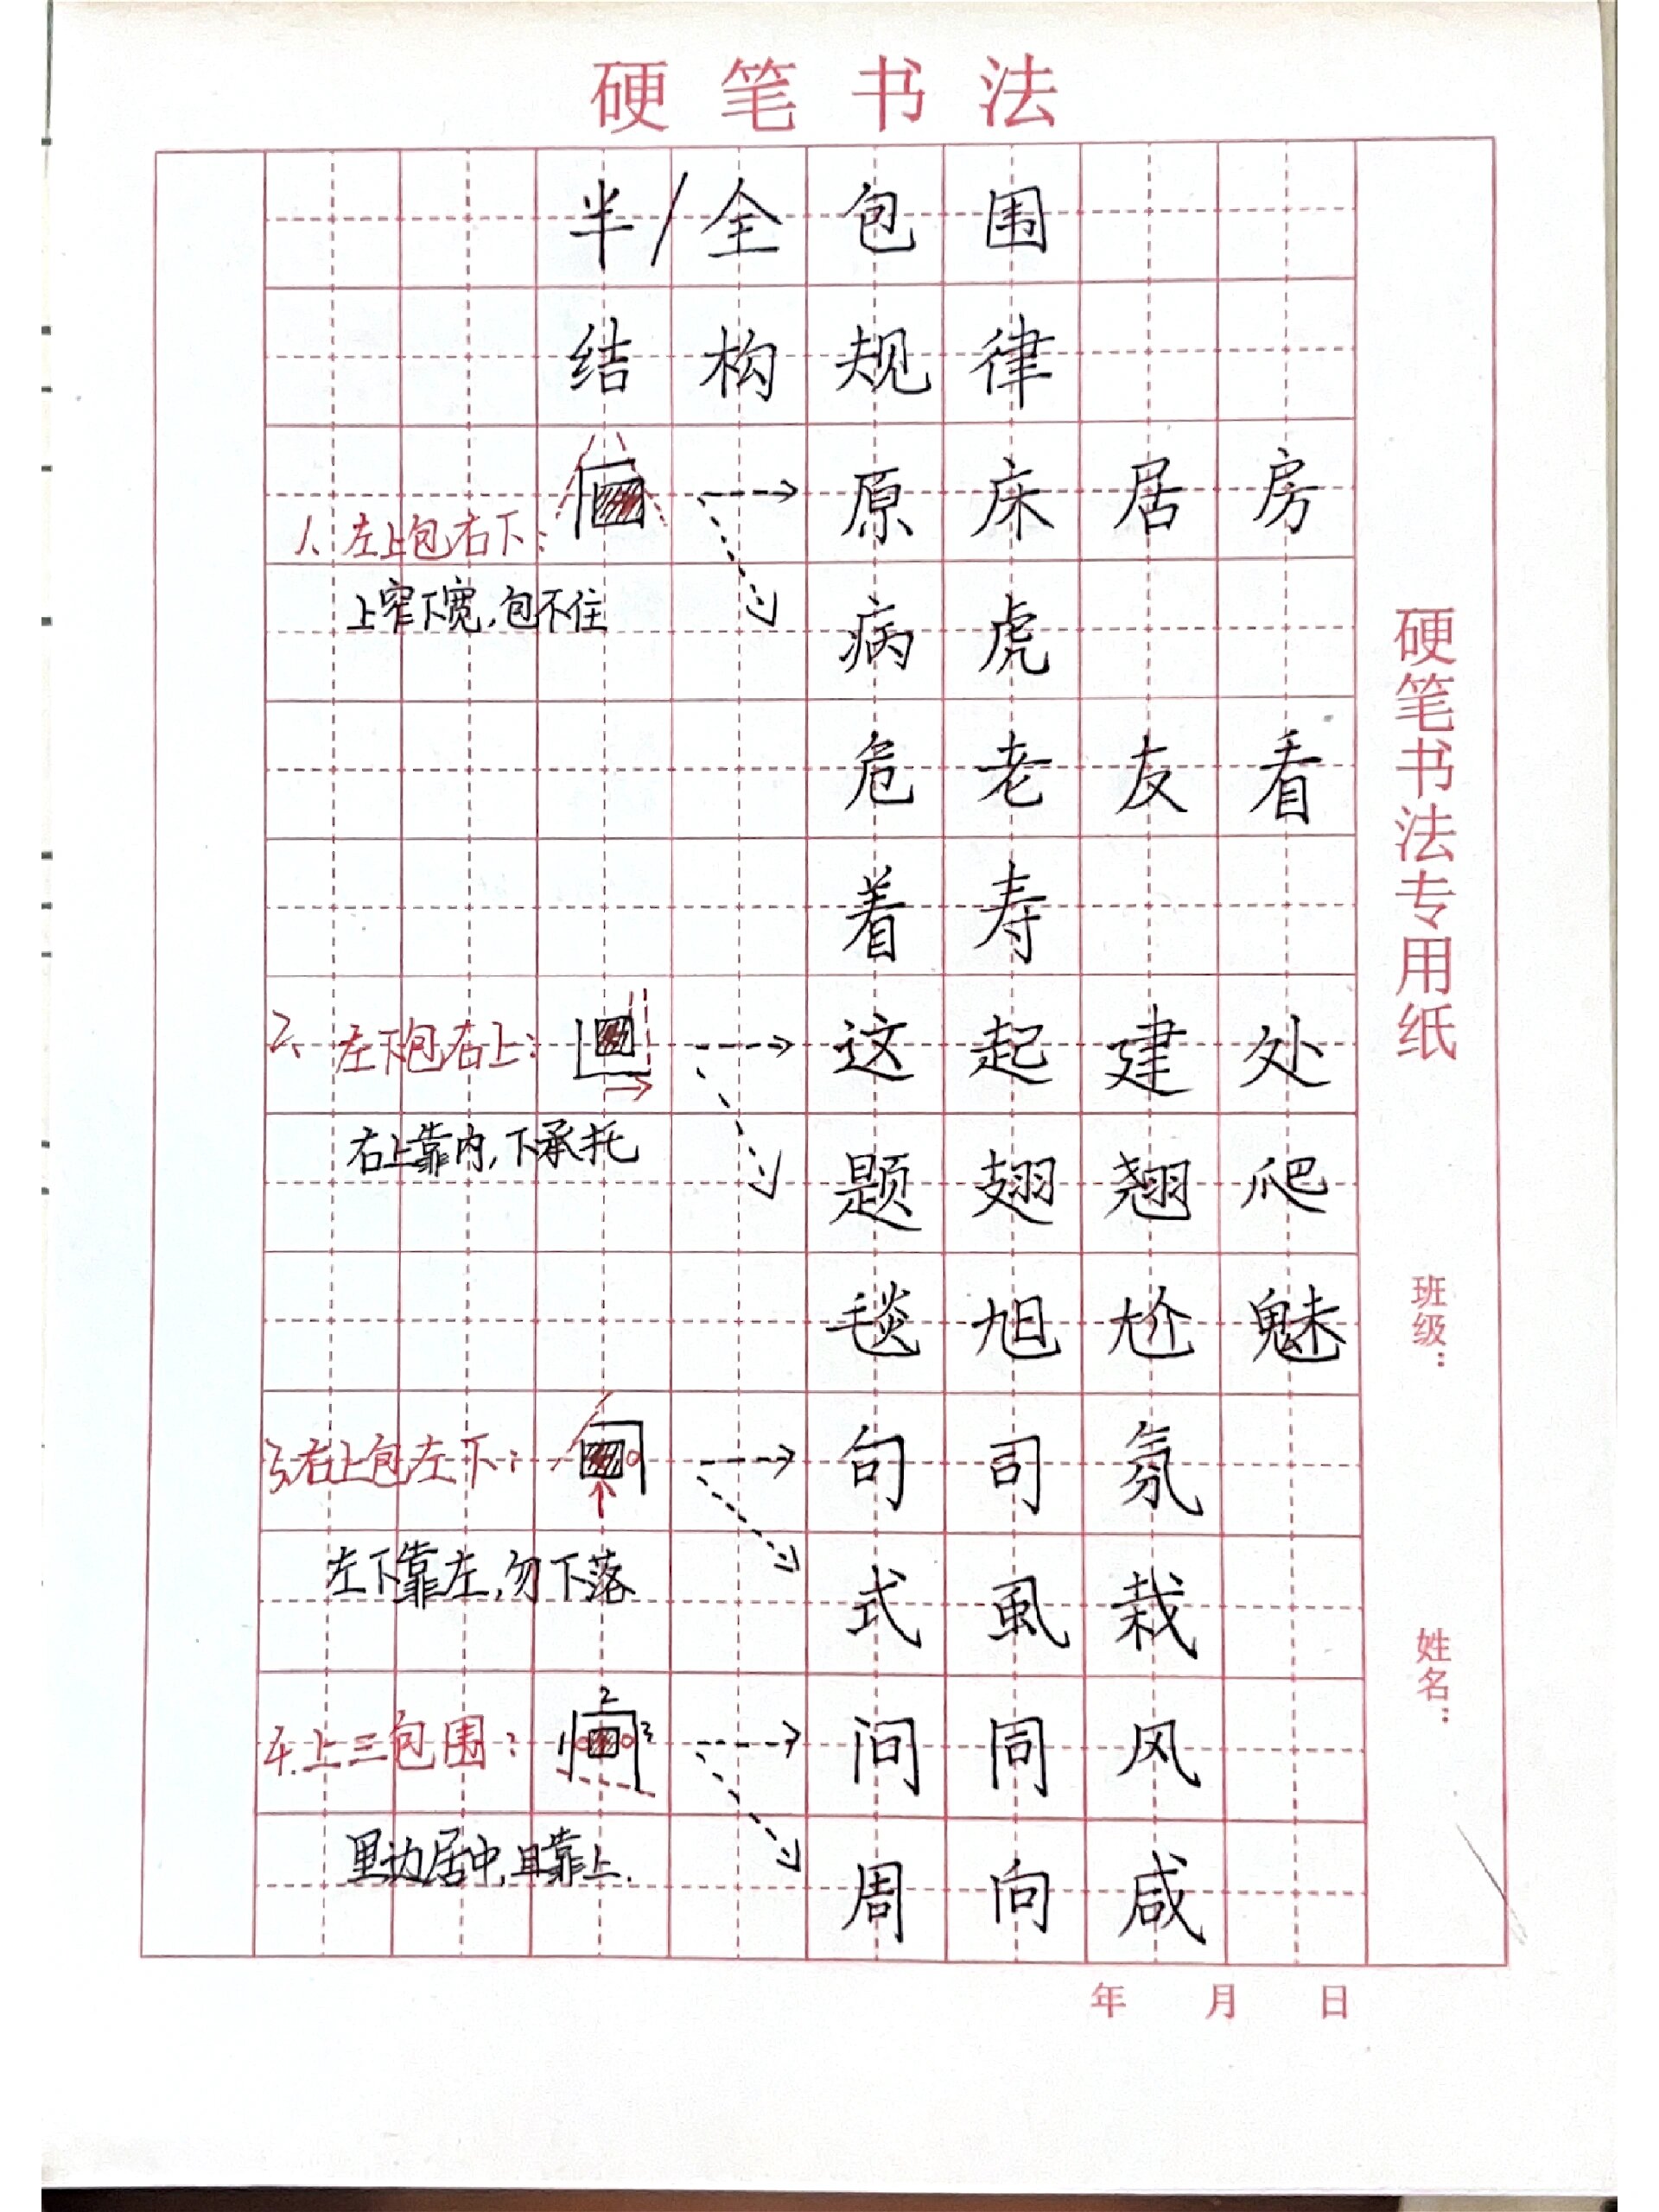 硬笔书法
半/全包围
结构规律
1、左上包右下：原床居房
上窄下宽，包不住
病虎
危老友看
着寿
2、左下包右上：这起建处
右上靠内，下承托
题翅翘爬
毯旭尬魅
3、右上包左下：句司氛
左下靠左，勿下落
式虱栽
4.上三包围：1 2 3 问同风
里边居中，且靠上.
周向咸
硬笔书法专用纸
班级：
姓名：
年 月 日